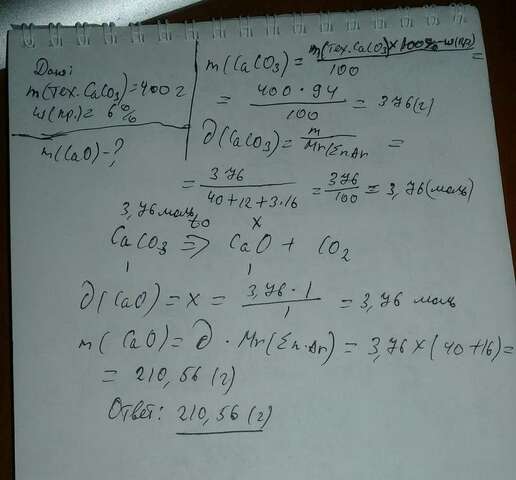 Дано:
m(тех. CaCO3)=400 г
w(пр.)= 6%
m(CaO)-?
m(CaCO3) = m(тех. CaCO3)×100%-w(пр) / 100 =
= 400 · 94 / 100 = 376(г)
∂(CaCO3) = m / Mr(Σn·Ar =
= 376 / 40+12+3·16 = 376 / 100 = 3,76(моль)
3,76 моль to x
CaCO3 => CaO + CO2
1 1
∂(CaO) = x = 3,76 · 1 / 1 = 3,76 моль
m(CaO) = ∂ · Mr(Σn·Ar) = 3,76 × (40+16) =
= 210,56 (г)
Ответ: 210,56 (г)